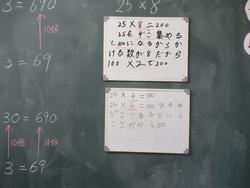 3 = 690
10倍
3 = 69
30 = 690
10倍 10倍
3 = 69
25×8
25×8=200
25を4こ集める
と100になるからか
ける数が8だから
100×2で200
25×4=100
25×4=100
200